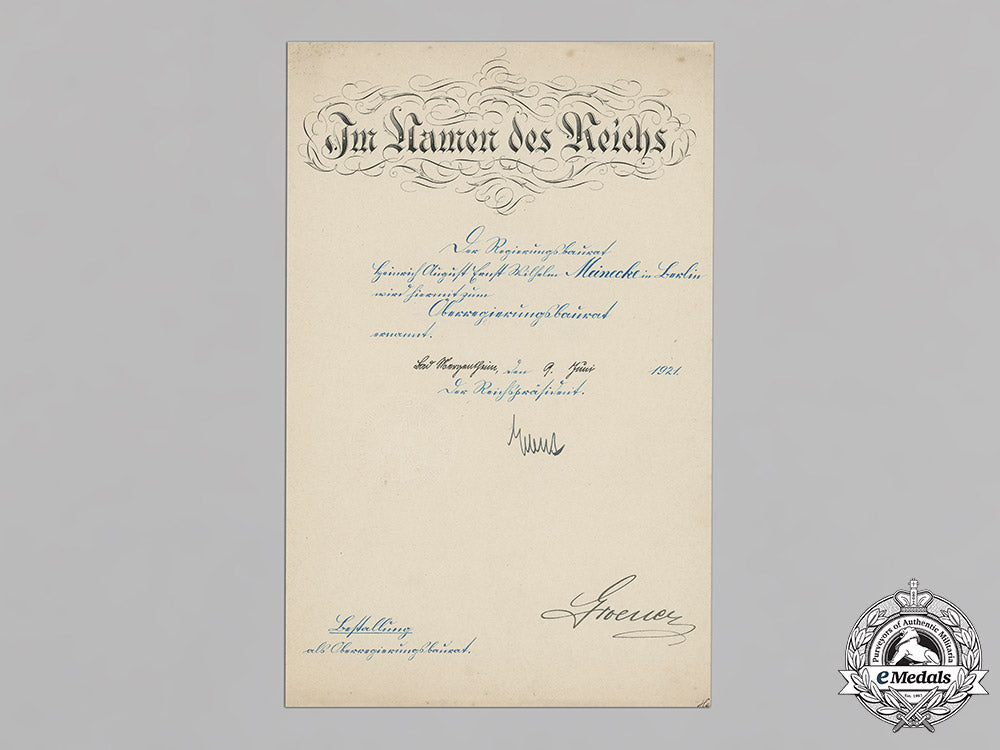 Im Namen des Reichs
Der Regierungsbaurat
Heinrich August Ernst Wilhelm Meinecke in Berlin
wird hiermit zum
Oberregierungsbaurat
ernannt.
Bad Mergentheim, den 9. Juni 1921.
Der Reichspräsident.
Ebert
Groener
Bestallung
als Oberregierungsbaurat.
Purveyors of Authentic Militaria
eMedals
Est. 1967